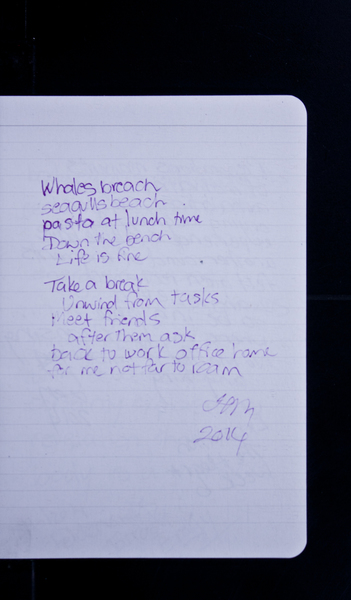 Whales breach
seagulls beach.
pasta at lunch time
Down the bench
Life is fine
Take a break
Unwind from tasks
Meet friends
after them ask
back to work office home
for me not far to roam
2014